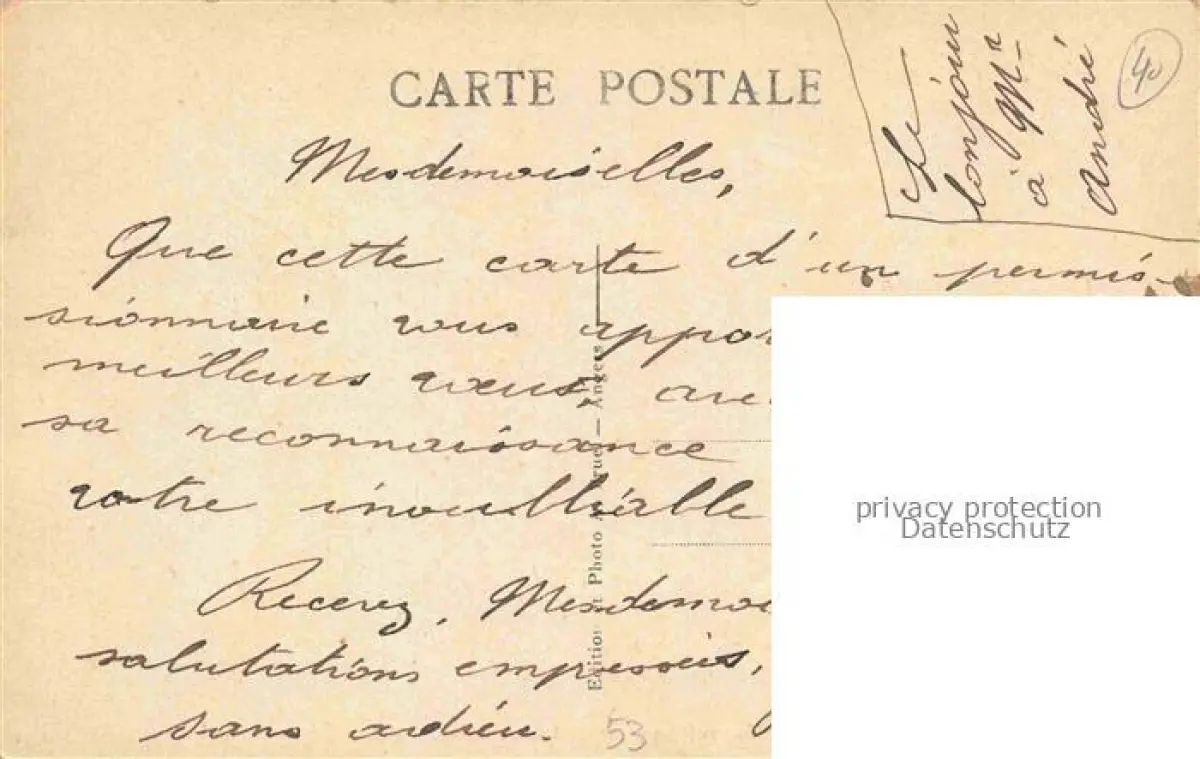 CARTE POSTALE
Le
bonjour
à Mr
André
40
Mesdemoiselles,
Que cette carte d'un permis-
sionnaire vous appor
meilleurs vœux, avec
sa reconnaissance
votre inoubliable
Recevez, Mesdemoi
salutations empressées,
sans adieu.
53
Edition et Photo — Angers
privacy protection
Datenschutz